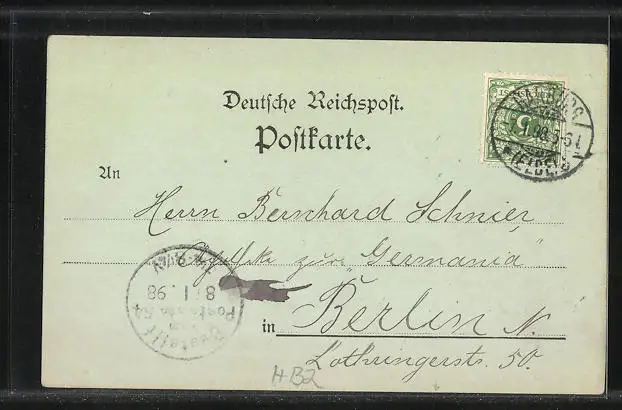 Deutsche Reichspost.
Postkarte.
HAMBURG
1.98.5-6
(ELBE)
An
Herrn Bernhard Schnier,
zur "Germania"
8.1.98
Postamt 54
Bestellt
in Berlin N.
Lothringerstr. 50.
HB2